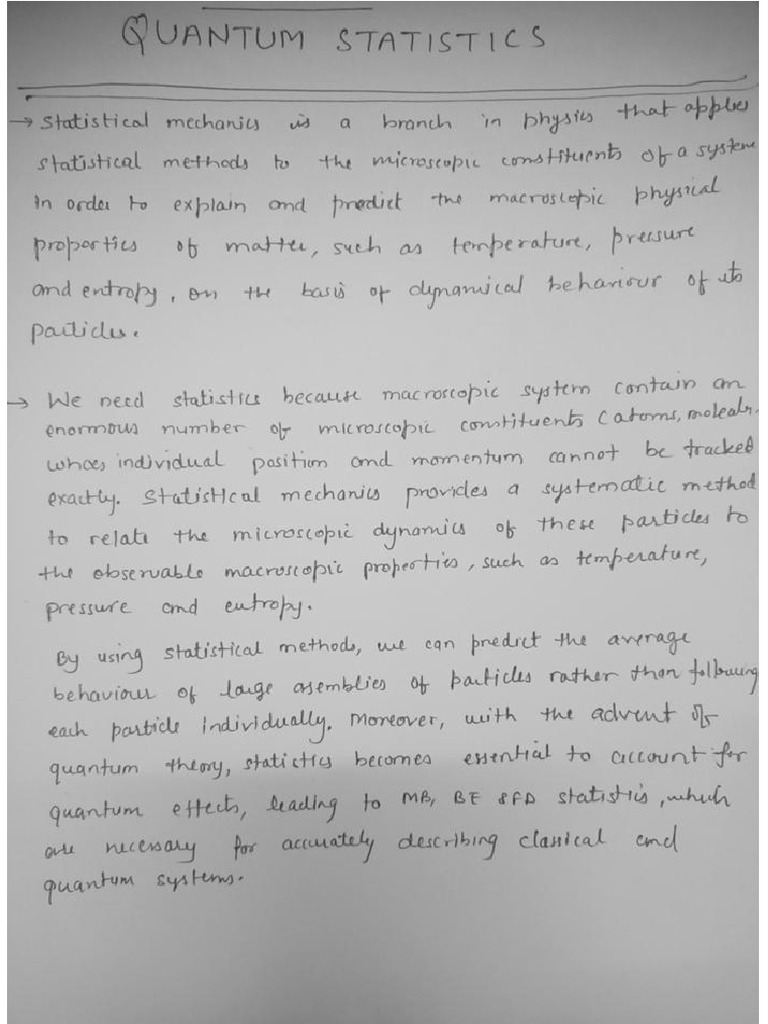 QUANTUM STATISTICS
→ Statistical mechanics is a branch in physics that applies
statistical methods to the microscopic constituents of a system
in order to explain and predict the macroscopic physical
properties of matter, such as temperature, pressure
and entropy, on the basis of dynamical behaviour of its
particles.
→ We need statistics because macroscopic system contain an
enormous number of microscopic constituents (atoms,
individual position and momentum cannot be tracked
exactly. Statistical mechanics provides a systematic method
to relate the microscopic dynamics of these particles to
the observable macroscopic properties, such as temperature,
pressure and entropy.
By using statistical methods, we can predict the average
behaviour of large asemblies of particles rather than following
each particle individually. Moreover, with the advent of
quantum theory, statictics becomes essential to account for
quantum effects, leading to MB, BE & FD statistics, which
are necessary for accurately describing classical and
quantum systems.